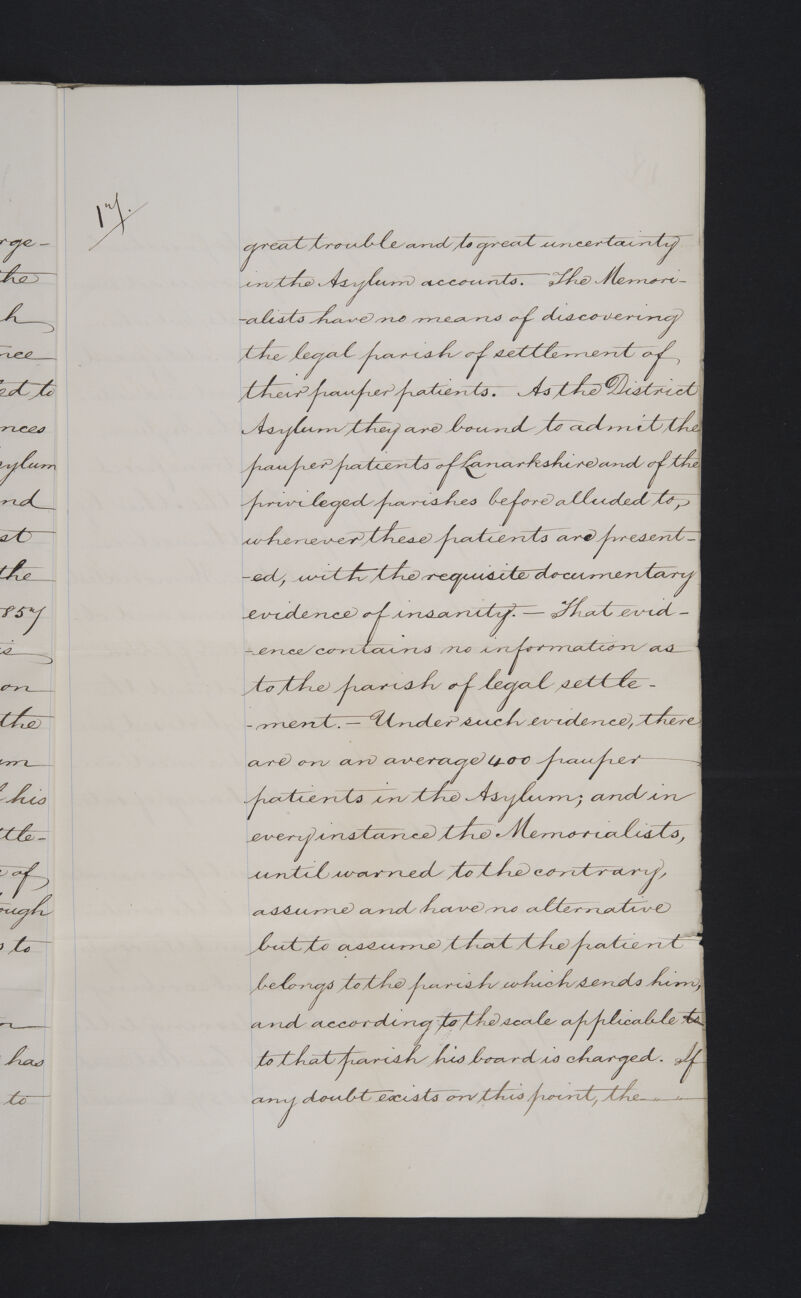 rge-
the
h
nce
ed to
nces
sylum
nd
st
the
1857
is
on
the
um
his
ttle-
of
ough
to
n
has
to
17.
great trouble and to great uncertainty
in the Asylum accounts. The Memori-
-alists have no means of discovering
the legal parish of settlement of
their pauper patients. As the District
Asylum they are bound to admit the
pauper patients of Lanarkshire and of the
privileged parishes before alluded to,
whenever these patients are present-
-ed, with the requisite documentary
evidence of insanity. — That evid-
-ence contains no information as
to the parish of legal settle-
-ment. — Under such evidence, there
are on an average 400 pauper
patients in the Asylum; and in
every instance the Memorialists,
until warned to the contrary,
assume and have no alternative
but to assume that the patient
belongs to the parish which sends him,
and according to the scale applicable to
to that parish his board is charged. If
any doubt exists on this point, the